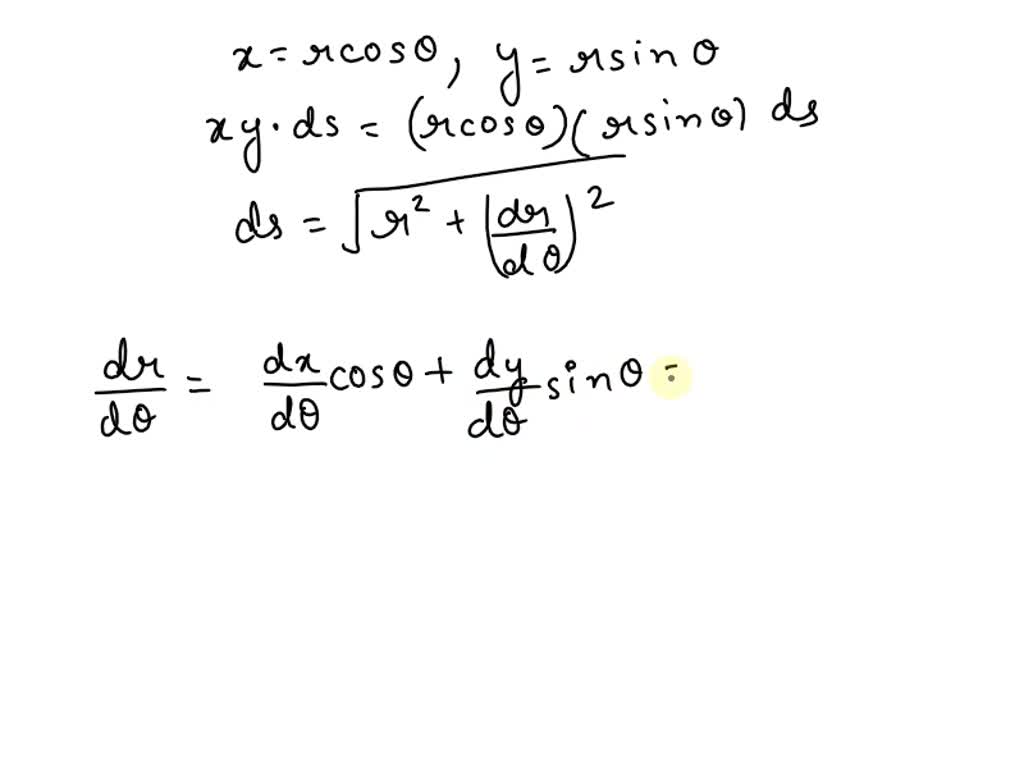 x = r cos θ, y = r sin θ
xy · ds = (r cos θ)(r sin θ) ds
ds = √(r² + (dr/dθ)²)
dr/dθ = dx/dθ cos θ + dy/dθ sin θ =